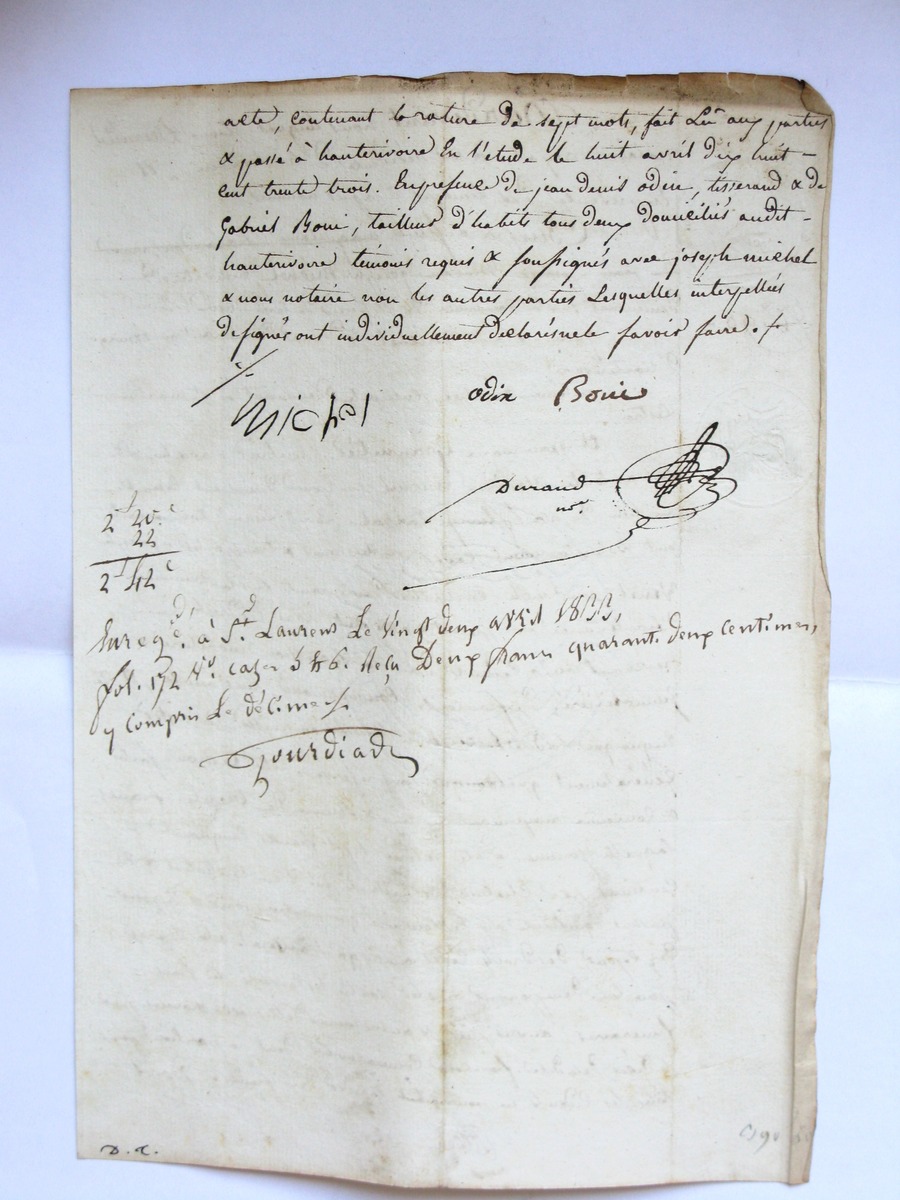 acte, contenant la rature de sept mots, fait Lû aux parties
& passé à hauterivoire En l'etude le huit avril dix huit
cent trente trois. En presence de jean denis odin, tisserand & de
Gabriel Boni, tailleur d'habits tous deux domiciliés audit
hauterivoire témoins requis & soussignés avec joseph michel
& nous notaire non les autres parties Lesquelles interpellées
de signer ont individuellement declaré ne le savoir faire ./.
Michel
odin Boni
Durand
nre.
2f 20.c
22
2f 42c
Enregé. à St. Laurent Le Vingt deux avril 1833,
fol. 172 Vo. cazes 5 & 6. Reçu Deux francs quarante deux centimes,
y compris Le décime ./.
Gourdiad
D. X.